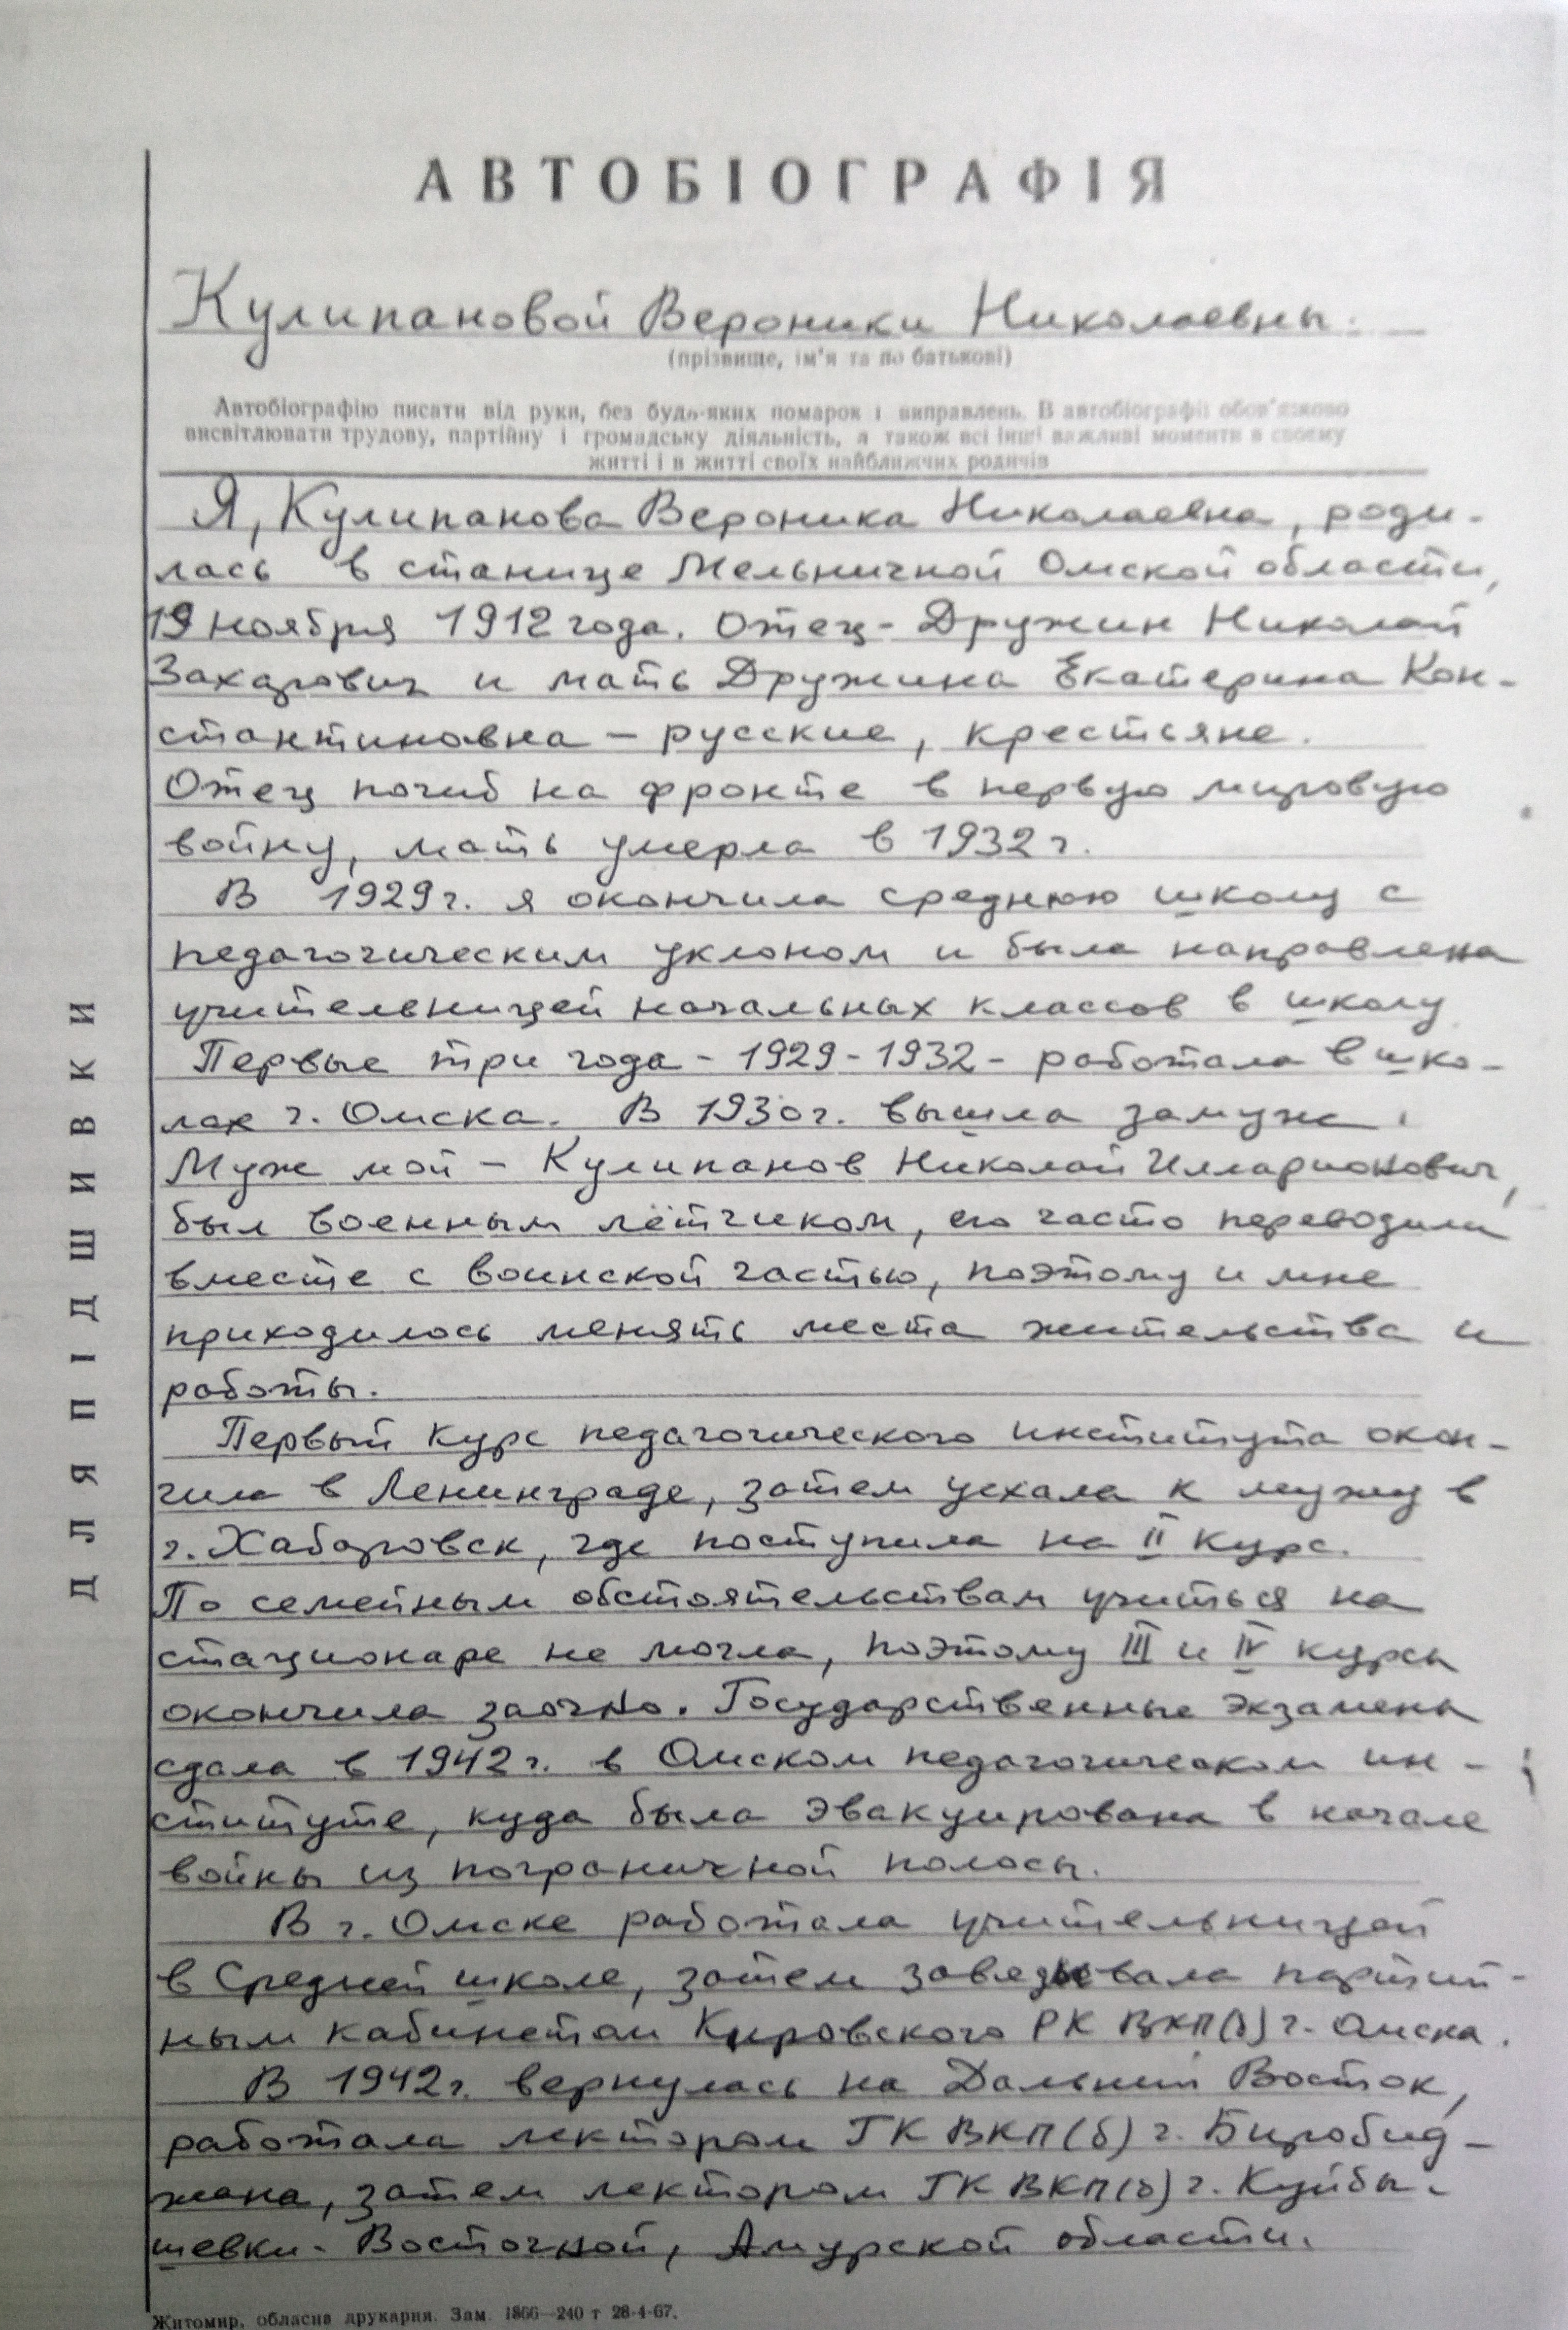 АВТОБІОГРАФІЯ
Кулипановой Вероники Николаевны.
(прізвище, ім'я та по батькові)
Автобіографію писати від руки, без будь-яких помарок і виправлень. В автобіографії обов'язково
висвітлювати трудову, партійну і громадську діяльність, а також всі інші важливі моменти в своєму
житті і в житті своїх найближчих родичів
Я, Кулипанова Вероника Николаевна, роди-
лась в станице Мельничной Омской области,
19 ноября 1912 года. Отец - Дружин Николай
Захарович и мать Дружина Екатерина Кон-
стантиновна – русские, крестьяне.
Отец погиб на фронте в первую мировую
войну, мать умерла в 1932 г.
В 1929 г. я окончила среднюю школу с
педагогическим уклоном и была направлена
учительницей начальных классов в школу
Первые три года - 1929 - 1932 - работала в шко-
лах г. Омска. В 1930 г. вышла замуж.
Муж мой – Кулипанов Николай Илларионович,
был военным лётчиком, его часто переводили
вместе с воинской частью, поэтому и мне
приходилось менять места жительства и
работы.
Первый курс педагогического института окон-
чила в Ленинграде, затем уехала к мужу в
г. Хабаровск, где поступила на II курс.
По семейным обстоятельствам учиться на
стационаре не могла, поэтому III и IV курсы
окончила заочно. Государственные экзамены
сдала в 1942 г. в Омском педагогическом ин-
ституте, куда была эвакуирована в начале
войны из пограничной полосы.
В г. Омске работала учительницей
в средней школе, затем заведывала партий-
ным кабинетом Кировского РК ВКП(б) г. Омска.
В 1942 г. вернулась на Дальний Восток,
работала лектором ГК ВКП(б) г. Биробид-
жана, затем лектором ГК ВКП(б) г. Куйбы-
шевки-Восточной, Амурской области.
ДЛЯ ПІДШИВКИ
Житомир, обласна друкарня. Зам. 1866—240 т 28-4-67.